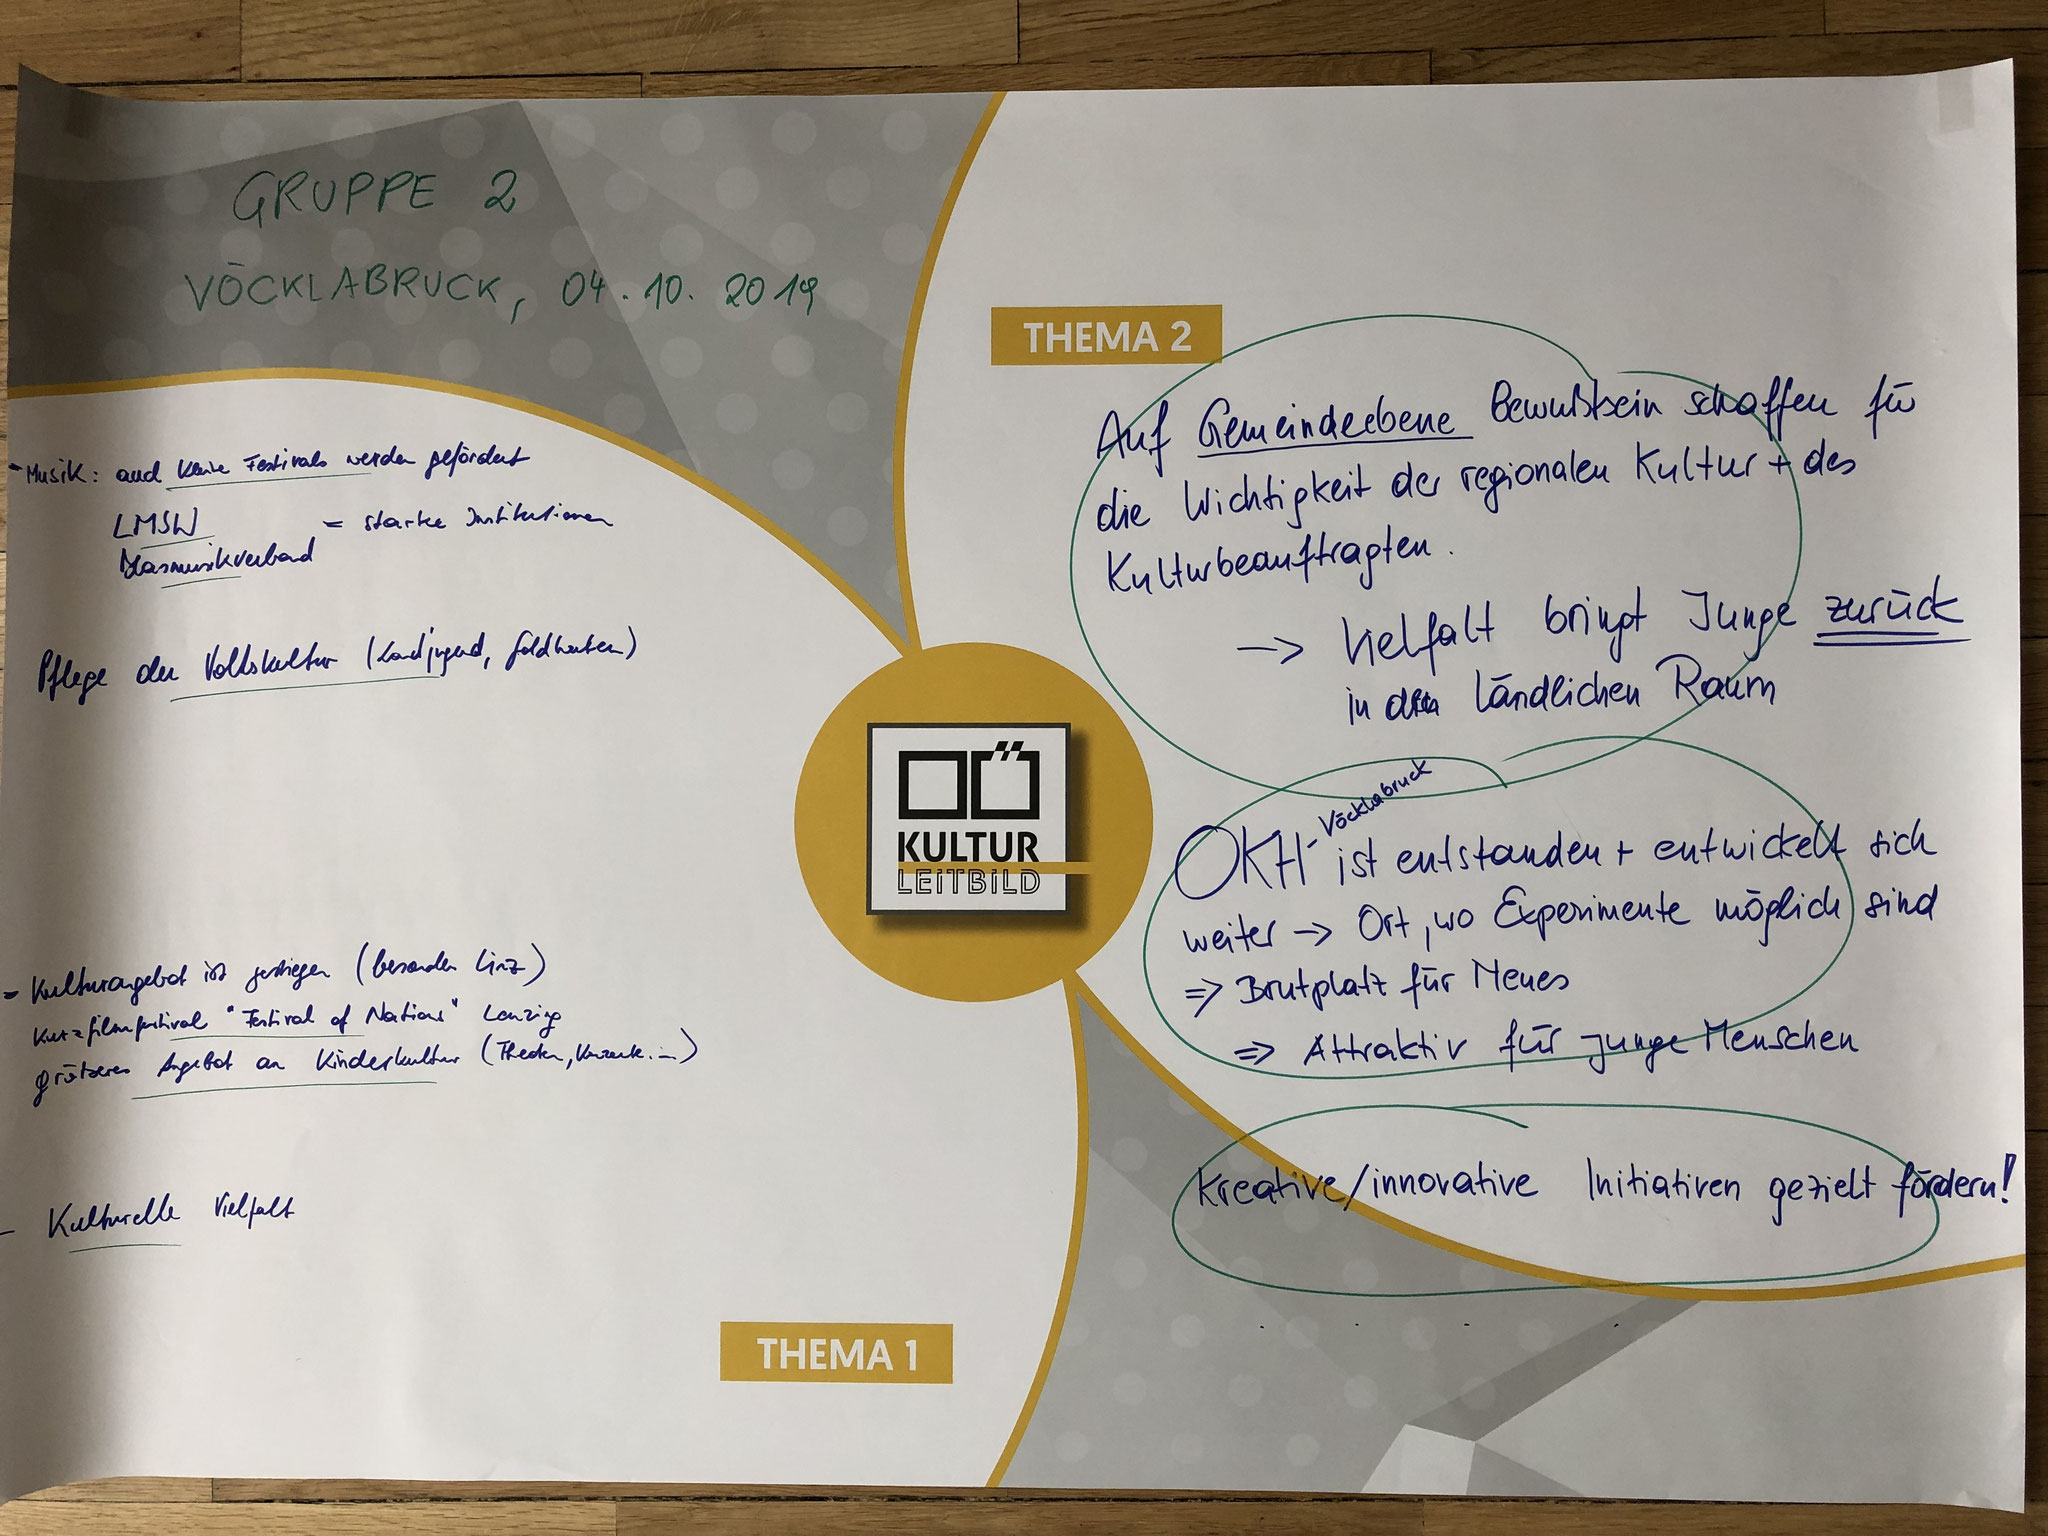 GRUPPE 2
VÖCKLABRUCK, 04.10.2019
- Musik: auch kleine Festivals werden gefördert
LMSW
= starke Institutionen
Blasmusikverband
Pflege der Volkskultur (Landjugend, Goldhauben)
- Kulturangebot ist gestiegen (besonders Linz)
Kurzfilmfestival "Festival of Nations" Lenzing
größeres Angebot an Kinderkultur (Theater, Konzerte...)
- Kulturelle Vielfalt
THEMA 1
OÖ
KULTUR
LEITBILD
THEMA 2
Auf Gemeindeebene Bewußtsein schaffen für
die Wichtigkeit der regionalen Kultur + des
Kulturbeauftragten.
→ Vielfalt bringt Junge zurück
in den ländlichen Raum
OKH - Vöcklabruck
ist entstanden + entwickelt sich
weiter → Ort, wo Experimente möglich sind
⇒ Brutplatz für Neues
⇒ Attraktiv für junge Menschen
Kreative/innovative Initiativen gezielt fördern!